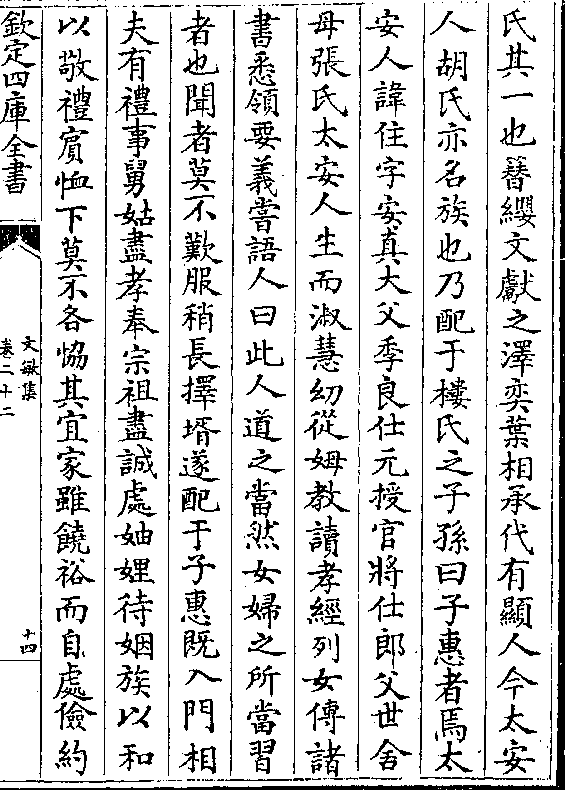 氏其一也簪纓文獻之澤奕葉相承代有顯人今太安
人胡氏亦名族也乃配于樓氏之子孫曰子惠者焉太
安人諱住字安真大父季良仕元授官將仕郎父世舍
母張氏太安人生而淑慧幼從姆教讀孝經列女傳諸
書悉領要義嘗語人曰此人道之當然女婦之所當習
者也聞者莫不歎服稍長擇壻遂配于子惠既入門相
夫有禮事舅姑盡孝奉宗祖盡誠處妯娌待姻族以和
以敬禮賓恤下莫不各恊其宜家雖饒裕而自處儉約
欽定四庫全書
文敏集
卷二十二
十四